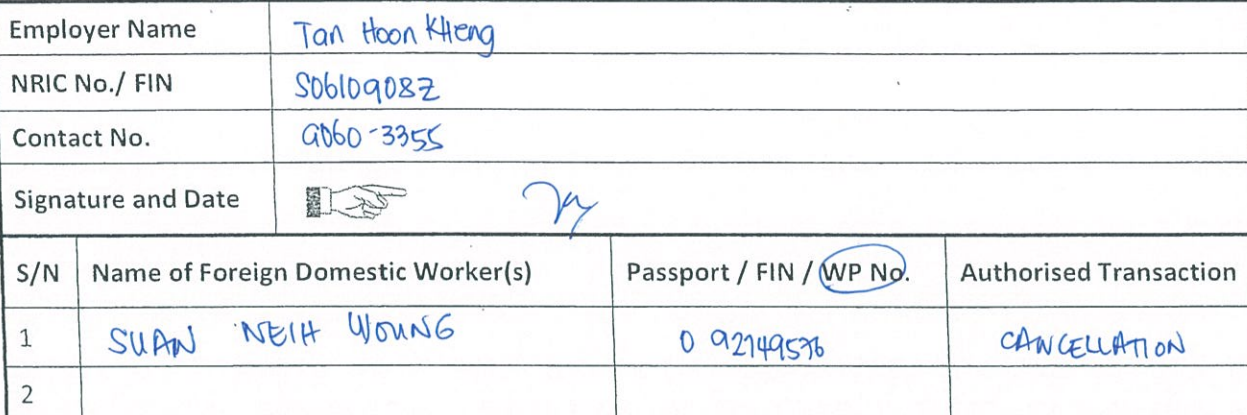 Employer Name Tan Hoon KHeng
NRIC No./ FIN S0610908Z
Contact No. 9060-3355
Signature and Date
S/N Name of Foreign Domestic Worker(s) Passport / FIN / WP No. Authorised Transaction
1 SUAN NEIH WOUNG 0 92749576 CANCELLATION
2